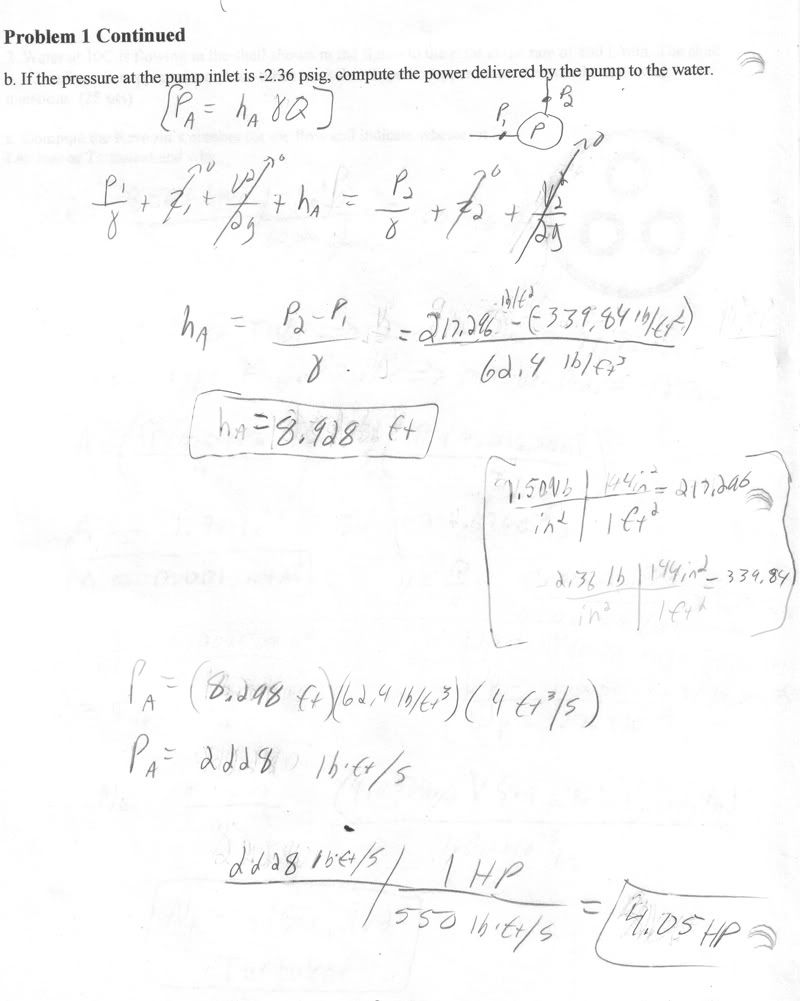 Problem 1 Continued
b. If the pressure at the pump inlet is -2.36 psig, compute the power delivered by the pump to the water.
[P_A = h_A γQ]
P_1 P P_2
P_1/γ + z_1 →0 + V_1^2/2g →0 + h_A = P_2/γ + z_2 →0 + V_2^2/2g →0
h_A = (P_2 - P_1)/γ = (217.296 lb/ft^2 - (-339.84 lb/ft^2))/(62.4 lb/ft^3)
h_A = 8.928 ft
1.509 lb/in^2 | 144 in^2/1 ft^2 = 217.296
2.36 lb/in^2 | 144 in^2/1 ft^2 = 339.84
P_A = (8.298 ft)(62.4 lb/ft^3)(4 ft^3/s)
P_A = 2228 lb·ft/s
2228 lb·ft/s | 1 HP/550 lb·ft/s = 4.05 HP